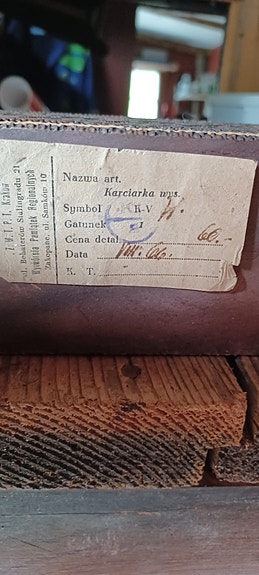 Z. W. T. P. T. Kraków
ul. Bohaterów Stalingradu 21
Wytwórnia Pamiątek Regionalnych
Zakopane, ul. Saników 10
Nazwa art.
Karciarka wys.
Symbol K-V
Gatunek I
Cena detal. 66.-
Data VIII. 66.
K. T.